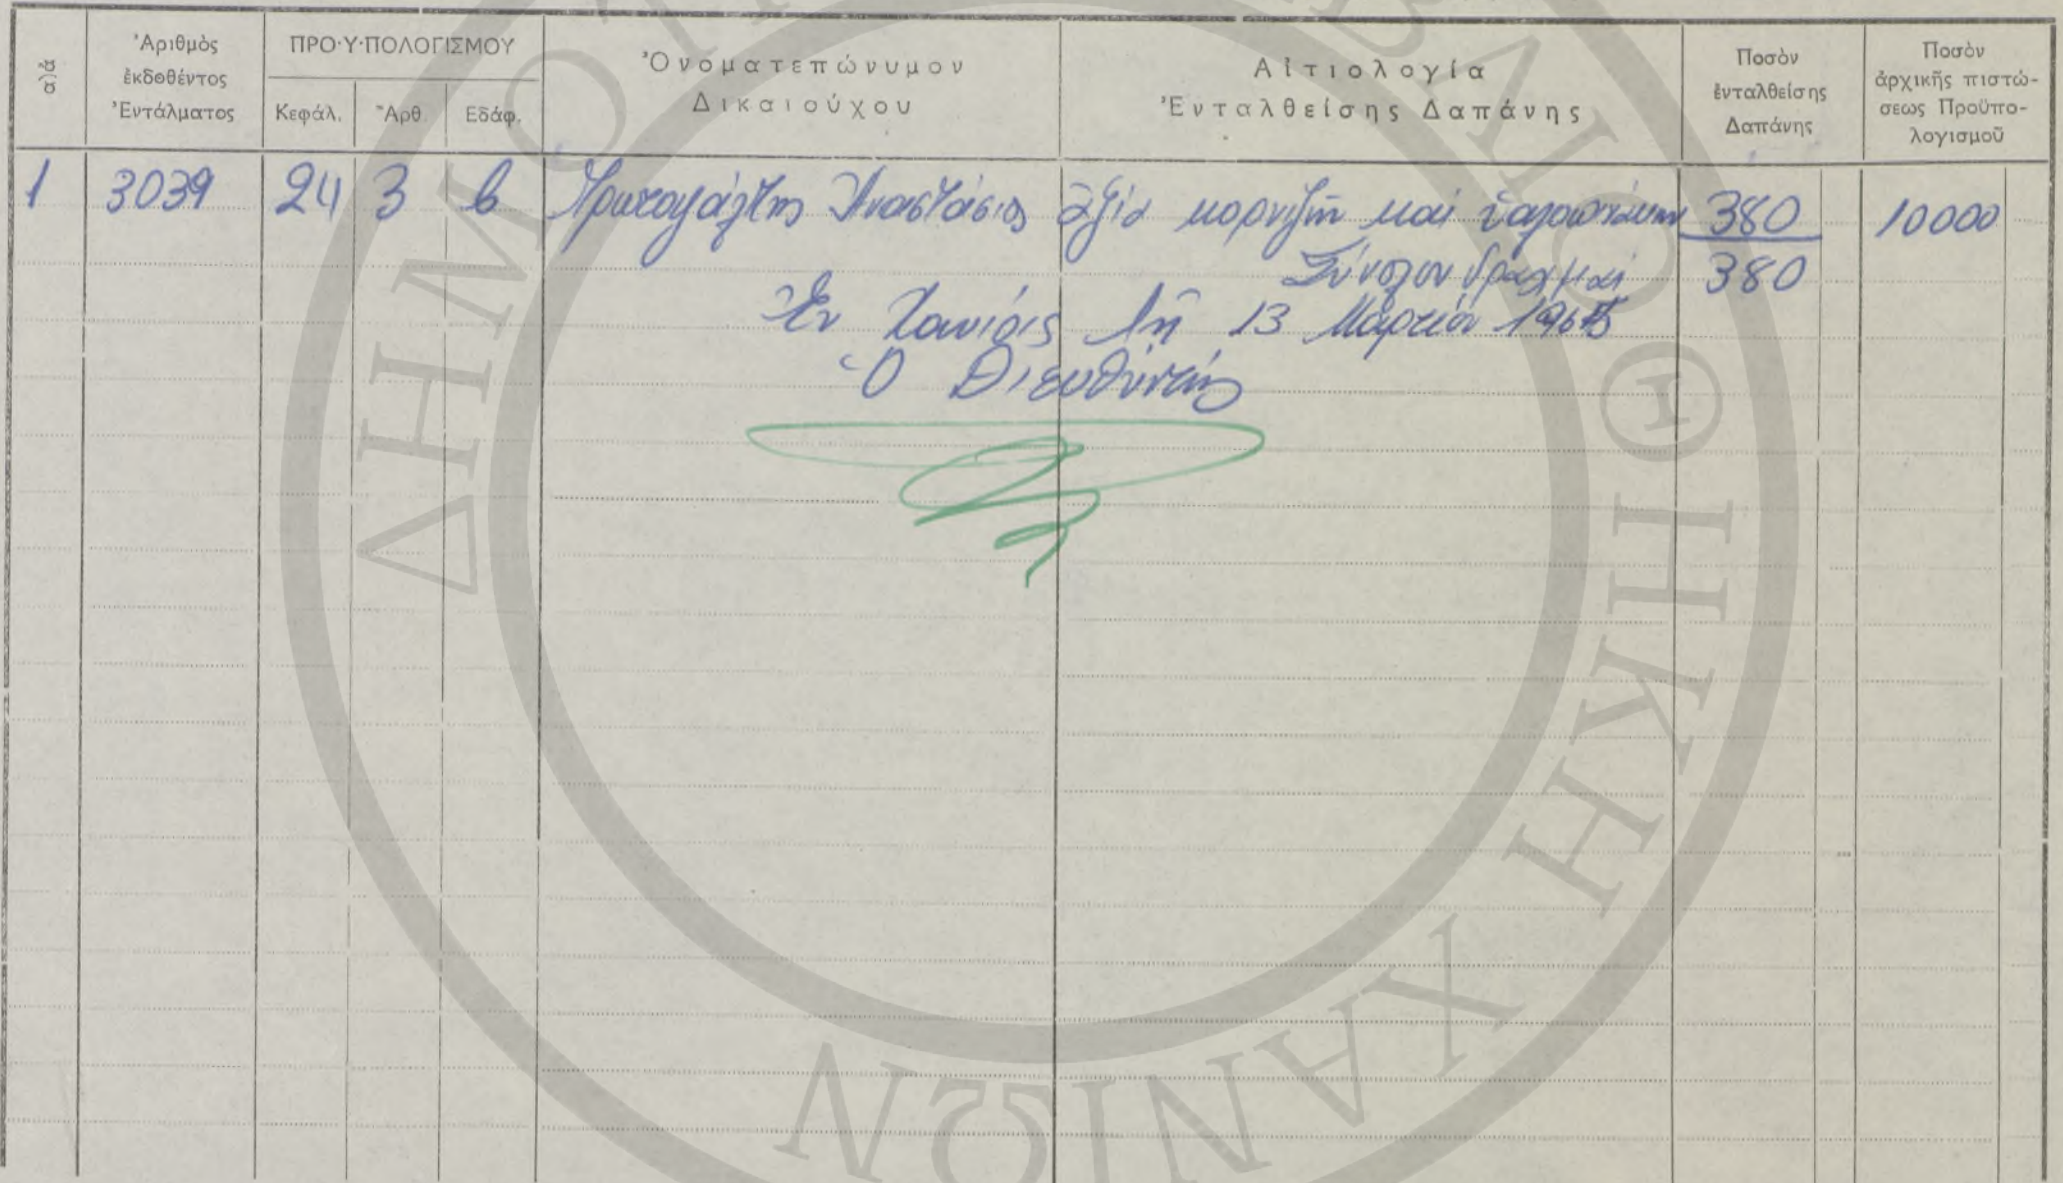 α)α
Ἀριθμὸς
ἐκδοθέντος
Ἐντάλματος
ΠΡΟ·Υ·ΠΟΛΟΓΙΣΜΟΥ
Κεφάλ. Ἄρθ. Εδάφ.
Ὀνοματεπώνυμον
Δικαιούχου
Αἰτιολογία
Ἐνταλθείσης Δαπάνης
Ποσὸν
ἐνταλθείσης
Δαπάνης
Ποσὸν
ἀρχικῆς πιστώ-
σεως Προϋπο-
λογισμοῦ
1 3039 24 3 β Πρωτοψάλτης Ἀναστάσιος ἀξία κορνιζῶν καὶ 380 10000
Σύνολον δραχμαί 380
Ἐν Χανίοις τῇ 13 Μαρτίου
Ὁ Διευθυντής
ΔΗΜΟΤΙΚΗ ΒΙΒΛΙΟΘΗΚΗ ΧΑΝΙΩΝ